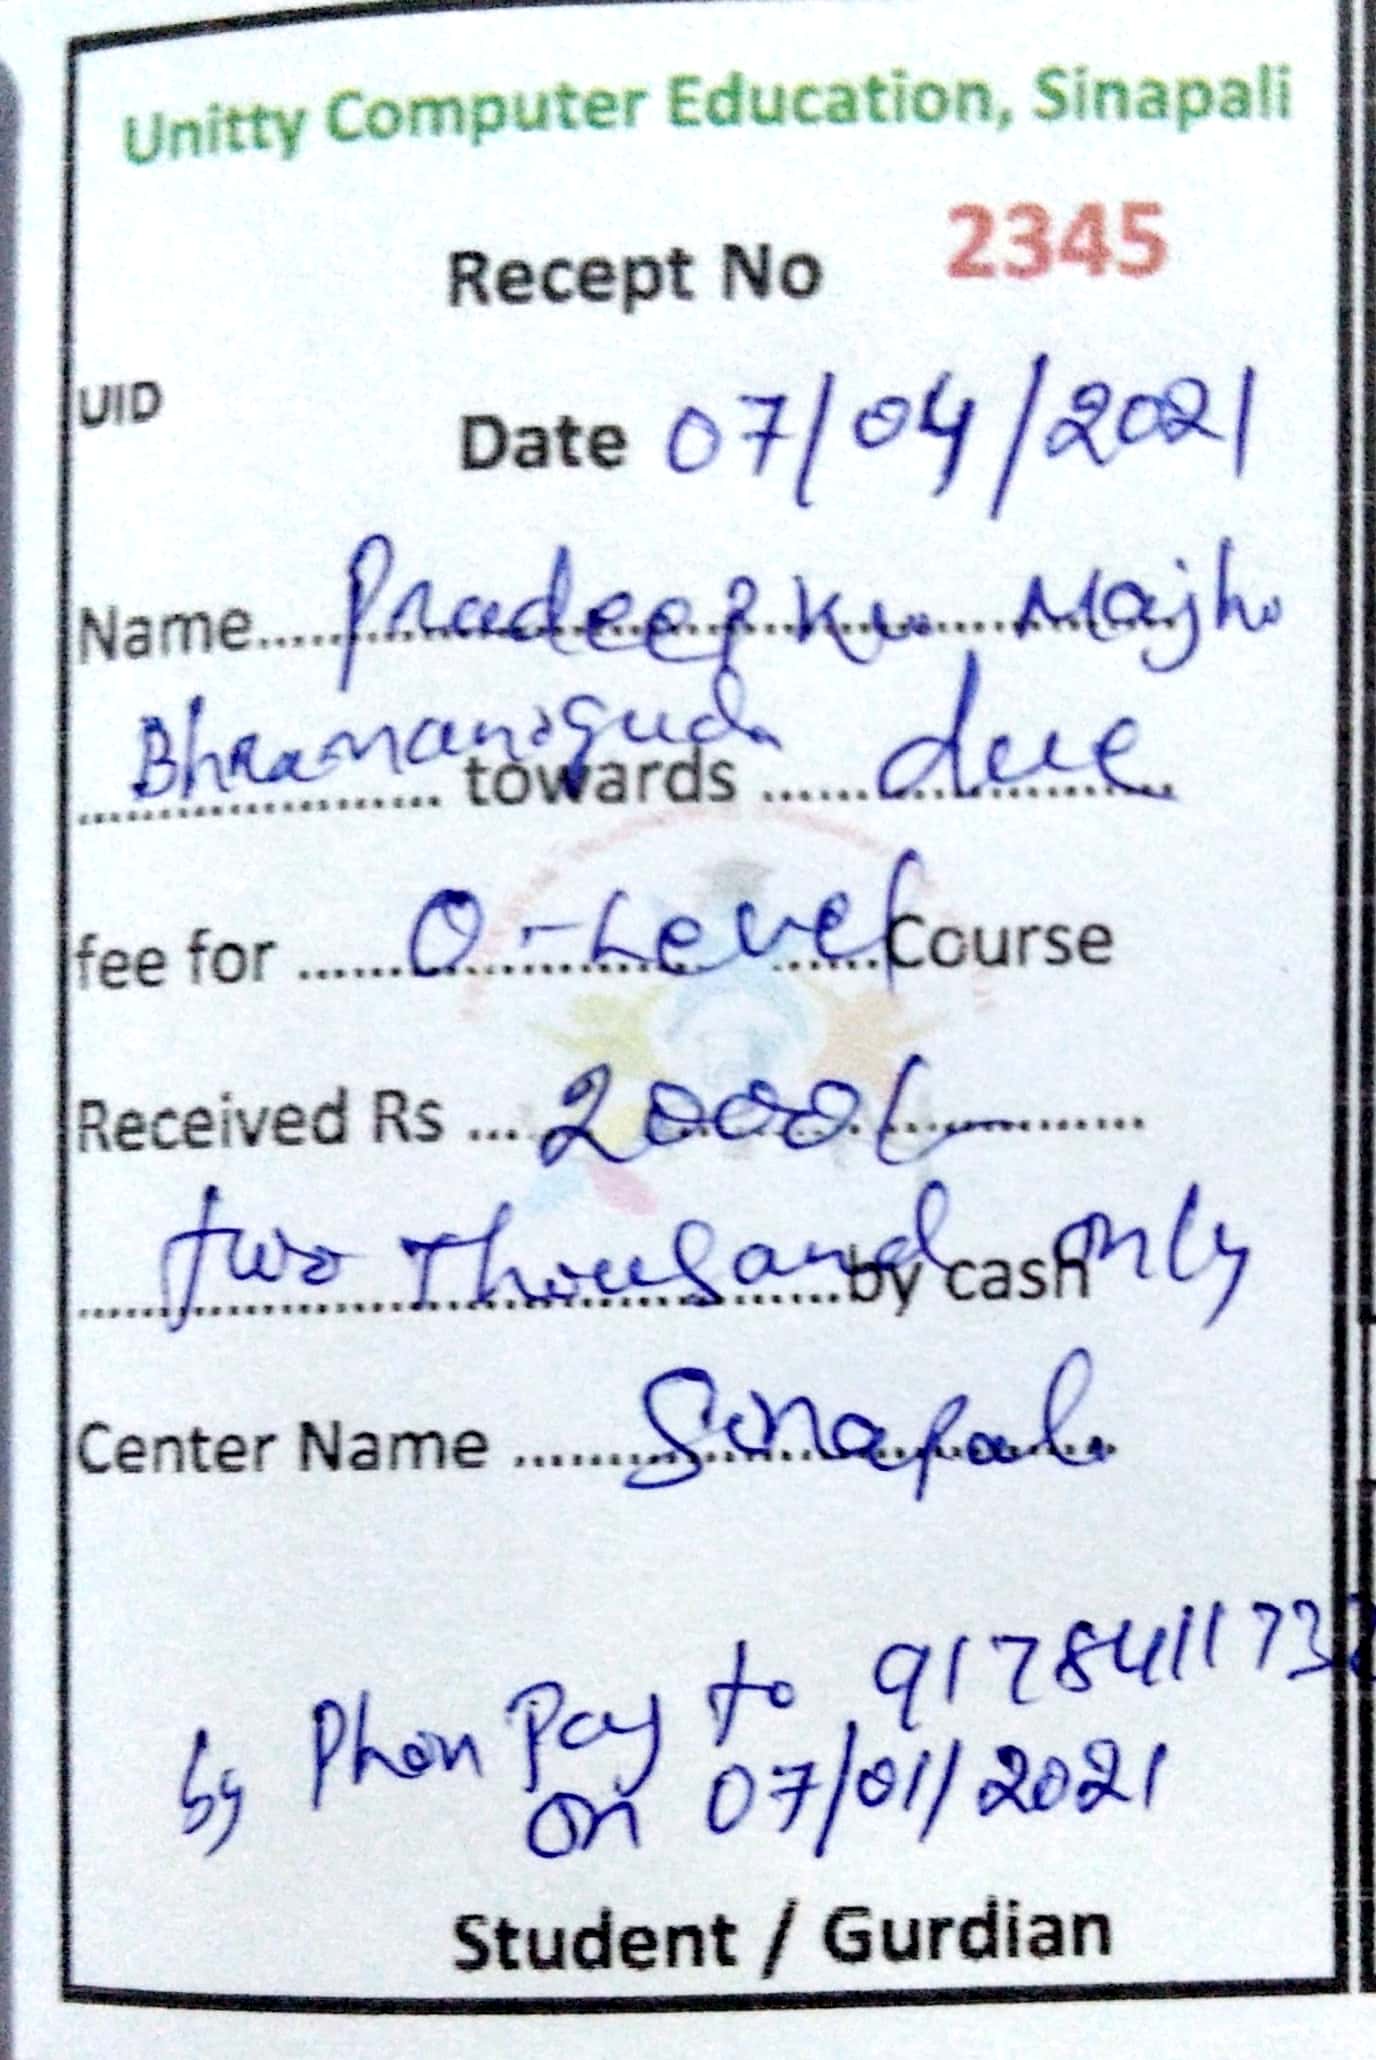 Unitty Computer Education, Sinapali
Recept No 2345
UID
Date 07/04/2021
Name..... Pradeep Ku Majhi
Bhramaniguda towards ...... due
fee for ...... O-Level Course
Received Rs ... 2000/-
two Thousand by cash only
Center Name ...... Sinapali
by Phon Pay to
on 07/01/2021
Student / Gurdian